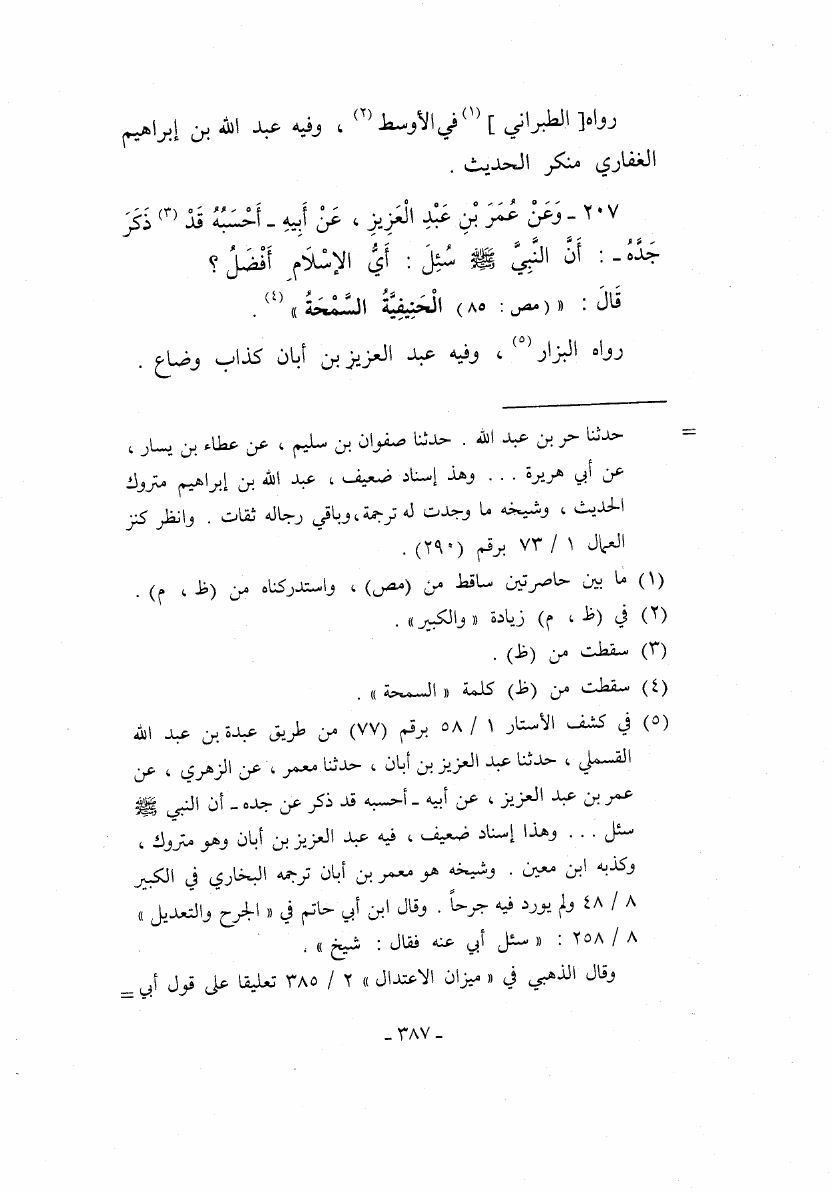 رواه[ الطبراني ] (١) في الأوسط (٢) ، وفيه عبد الله بن إبراهيم
الغفاري منكر الحديث .
٢٠٧ ـ وَعَنْ عُمَرَ بْنِ عَبْدِ الْعَزِيزِ ، عَنْ أَبِيهِ ـ أَحْسَبُهُ قَدْ (٣) ذَكَرَ
جَدَّهُ ـ : أَنَّ النَّبِيَّ ﷺ سُئِلَ : أَيُّ الإِسْلَامِ أَفْضَلُ ؟
قَالَ : « (مص : ٨٥) الْحَنِيفِيَّةُ السَّمْحَةُ » (٤) .
رواه البزار (٥) ، وفيه عبد العزيز بن أبان كذاب وضاع .
= حدثنا حر بن عبد الله . حدثنا صفوان بن سليم ، عن عطاء بن يسار ،
عن أبي هريرة . . . وهذ إسناد ضعيف ، عبد الله بن إبراهيم متروك
الحديث ، وشيخه ما وجدت له ترجمة، وباقي رجاله ثقات . وانظر كنز
العمال ١ / ٧٣ برقم (٢٩٠) .
(١) ما بين حاصرتين ساقط من (مص) ، واستدركناه من (ظ ، م) .
(٢) في (ظ ، م) زيادة « والكبير » .
(٣) سقطت من (ظ) .
(٤) سقطت من (ظ) كلمة « السمحة » .
(٥) في كشف الأستار ١ / ٥٨ برقم (٧٧) من طريق عبدة بن عبد الله
القسملي ، حدثنا عبد العزيز بن أبان ، حدثنا معمر ، عن الزهري ، عن
عمر بن عبد العزيز ، عن أبيه ـ أحسبه قد ذكر عن جده ـ أن النبي ﷺ
سئل . . . وهذا إسناد ضعيف ، فيه عبد العزيز بن أبان وهو متروك ،
وكذبه ابن معين . وشيخه هو معمر بن أبان ترجمه البخاري في الكبير
٨ / ٤٨ ولم يورد فيه جرحاً . وقال ابن أبي حاتم في « الجرح والتعديل »
٨ / ٢٥٨ : « سئل أبي عنه فقال : شيخ » .
وقال الذهبي في « ميزان الاعتدال » ٢ / ٣٨٥ تعليقا على قول أبي =
ـ ٣٨٧ ـ